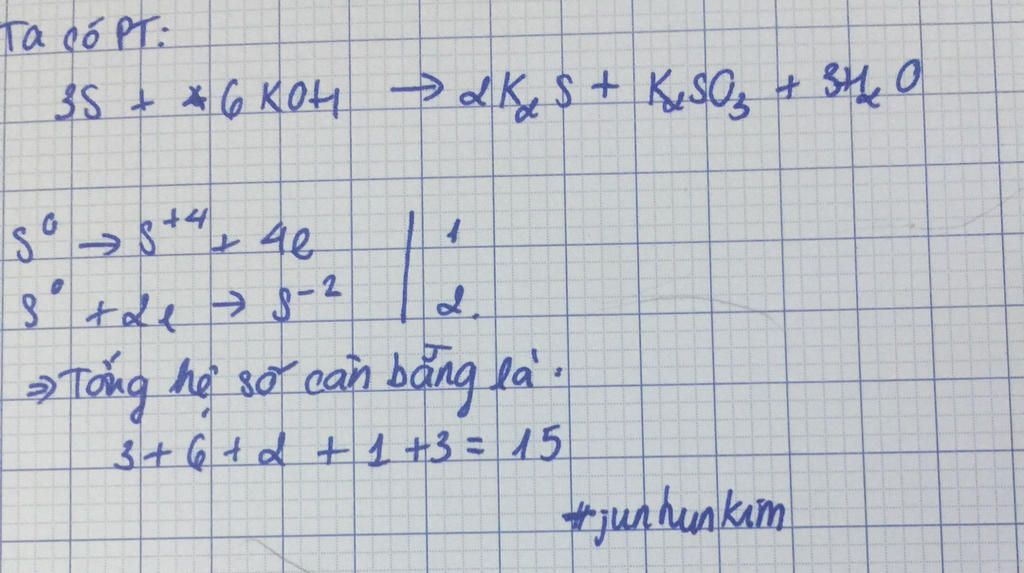 Ta có PT:
3S + 6 KOH → 2K₂S + K₂SO₃ + 3H₂O
S⁰ → S⁺⁴ + 4e | 1
S⁰ + 2e → S⁻² | 2.
⇒ Tổng hệ số cân bằng là:
3 + 6 + 2 + 1 + 3 = 15
#junhunkim